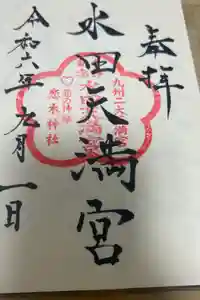 奉拝
水田天満宮
九州二大天満宮
恋木神社
令和六年九月一日